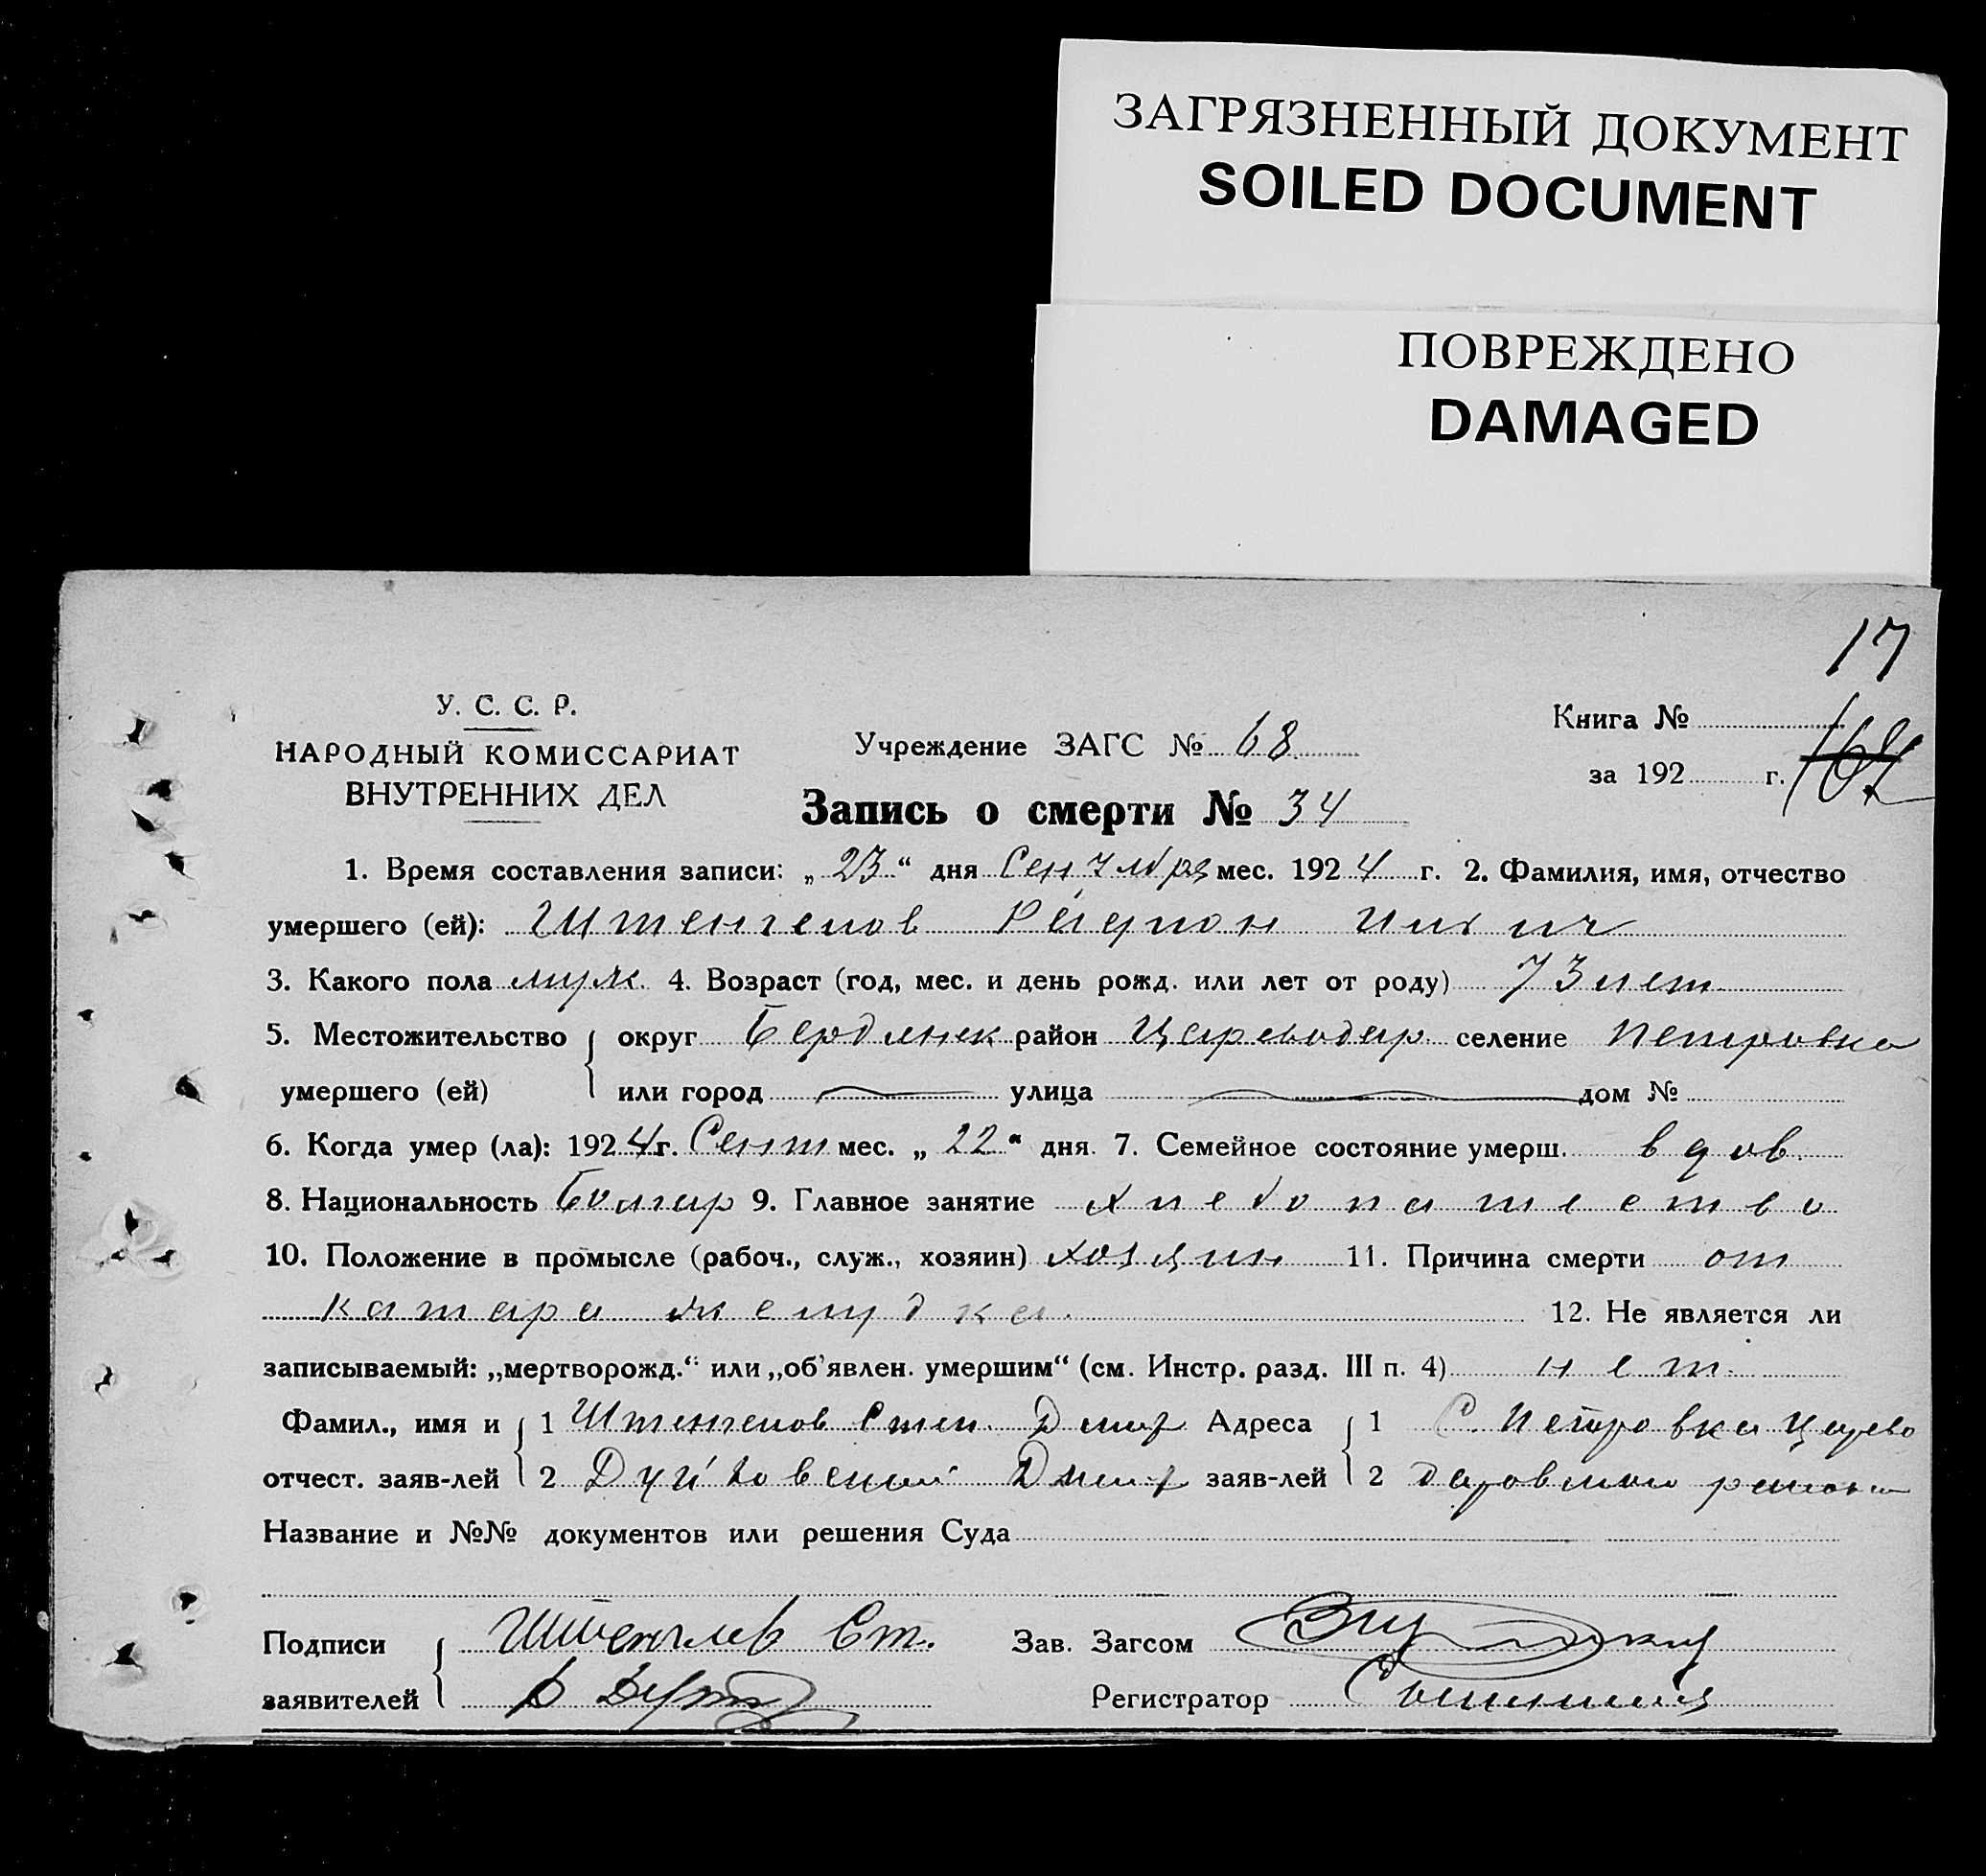 ЗАГРЯЗНЕННЫЙ ДОКУМЕНТ
SOILED DOCUMENT
ПОВРЕЖДЕНО
DAMAGED
17
У. С. С. Р.
НАРОДНЫЙ КОМИССАРИАТ
ВНУТРЕННИХ ДЕЛ
Учреждение ЗАГС № 68
Книга №
за 192 г.
Запись о смерти № 34
1. Время составления записи: „23“ дня Сентября мес. 1924 г. 2. Фамилия, имя, отчество
умершего (ей): Штенгелов Родион
3. Какого пола муж. 4. Возраст (год, мес. и день рожд. или лет от роду) 73 лет
5. Местожительство округ Бердянск район Цареводар. селение Петровка
умершего (ей) или город улица дом №
6. Когда умер (ла): 1924г. Сент мес. „22“ дня. 7. Семейное состояние умерш. вдов.
8. Национальность Болгар 9. Главное занятие хлебопашество
10. Положение в промысле (рабоч., служ., хозяин) хозяин 11. Причина смерти от
катара желудка. 12. Не является ли
записываемый: „мертворожд.“ или „об’явлен. умершим“ (см. Инстр. разд. III п. 4) нет.
Фамил., имя и 1 Штенгелов Степ. Дмит Адреса 1 С. Петровка Царево
отчест. заяв-лей 2 Дмит заяв-лей 2 даровского района
Название и №№ документов или решения Суда
Подписи Штенглов Ст. Зав. Загсом
заявителей Регистратор